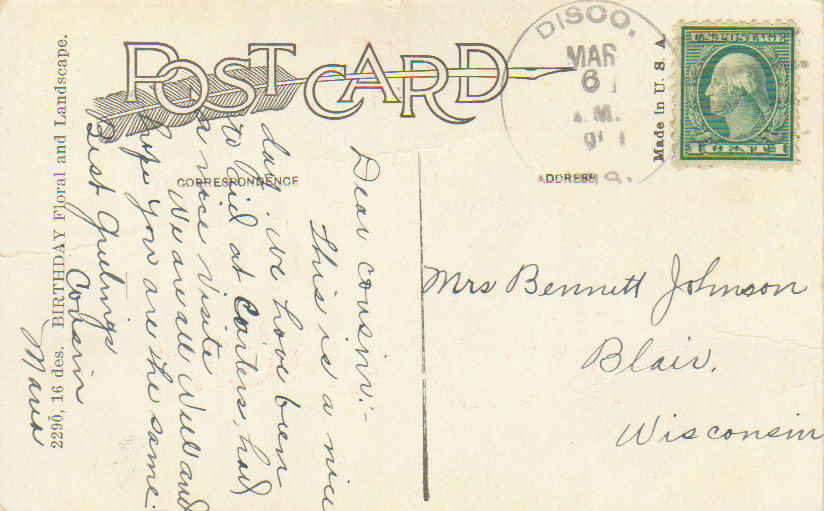 POST CARD
CORRESPONDENCE
ADDRESS
DISCO,
MAR
6
A.M.
U.S. POSTAGE
1 CENT 1
Made in U. S. A.
2290, 16 des. BIRTHDAY Floral and Landscape.
Dear cousin:-
This is a nice
day, we have been
to Aid at Carters, had
a nice visite
We are all Well and
hope you are the same.
Best Greetings
Cousin
Mrs Bennett Johnson
Blair,
Wisconsin